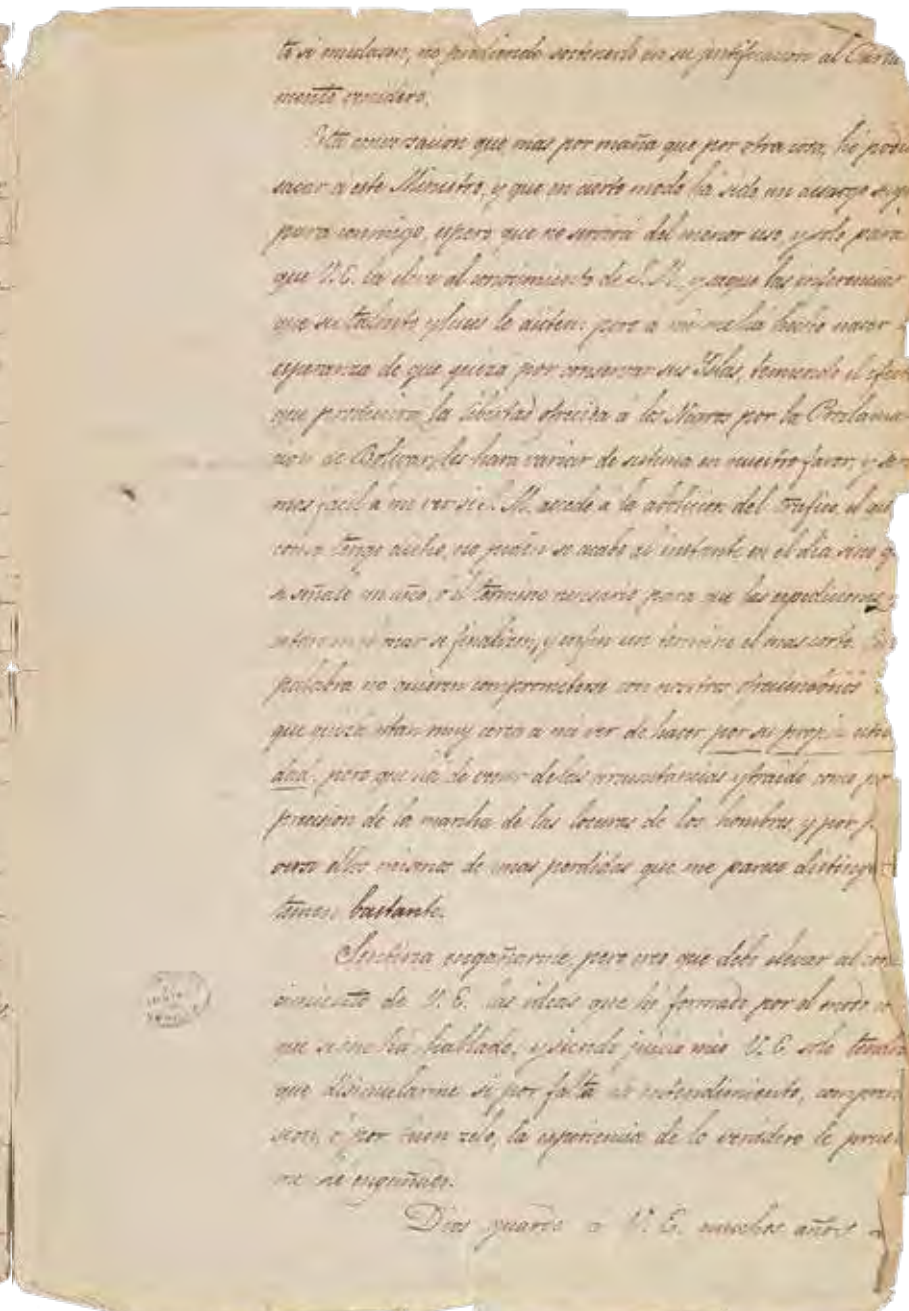 no pudiendo sostenerlo en su justificacion al
mente venidero.
Esta conversacion que mas por maña que por otra cosa, hé podi
sacar a este Ministro, y que en cierto modo há sido un
para conmigo, espero que no servirá del menor uso y solo para
que V.E. la eleve al conocimiento de S.M. y saque las inferencias
que su talento y luces le dicten: pero á mi me ha hecho nacer
esperanza de que quizá por conservar sus Yslas, temiendo el efect
que la libertad ofrecida á los Negros por la Proclama
cion de Bolivar, les hará variar de sistema en nuestro favor, y
mas facil á mi ver si S.M. accede á la abolicion del trafico, el
como tengo dicho, no se acabe al instante en el dia sino q
se señale un año, ó el término necesario para que las expediciones y
en el mar se finalizen, y enfin un término el mas corto.
palabra no quieren comprometerse con nosotros
que quizá estan muy cerca a mi ver de hacer por su propia utili
dad; pero que há de venir de las circunstancias y traido como por
precision de la marcha de las locuras de los hombres, y por
ellos mismos de mas perdidas que me parece
temen bastante.
Sentiria engañarme, pero creo que debo elevar al cono
cimiento de V.E. las ideas que hé formado por el modo
que se me há hablado, y siendo juicio mio V.E. solo tendra
que disimularme si por falta de entendimiento, compren
sion, ó por buen zelo, la esperiencia de lo venidero le prueba
me hé engañado.
Dios guarde a V.E. muchos años